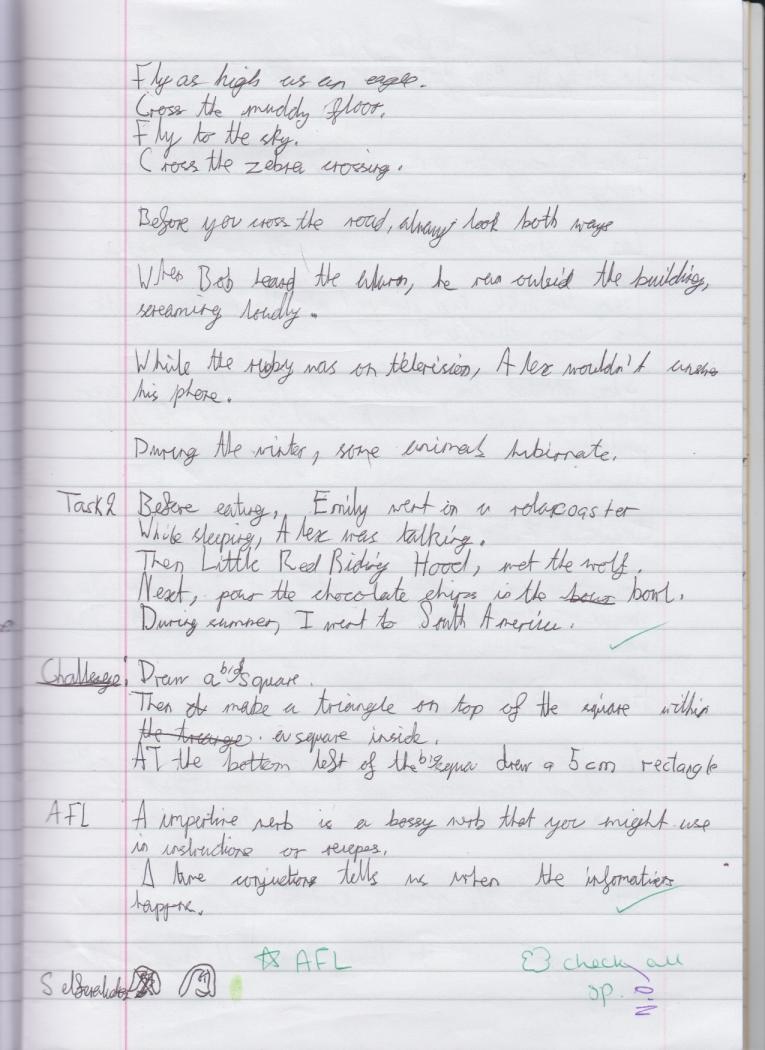 Fly as high as an eagle.
Cross the muddy floor.
Fly to the sky.
Cross the zebra crossing.
Before you cross the road, always look both ways
When Bob heard the alarm, he ran outsid the building,
screaming loudly.
While the rugby was on television, Alex wouldn't
his phone.
During the winter, some animals hibernate.
Task 2 Before eating, Emily went in a rolarcoaster
While sleeping, Alex was talking.
Then Little Red Riding Hood, met the wolf.
Next, pour the chocolate chips in the bowl.
During summer, I went to South America.
Challenge: Draw a big square.
Then make a triangle on top of the square within
a square inside.
AT the bottom left of the big squa draw a 5cm rectangle
AFL A impertive verb is a bossy verb that you might use
in instructions or recepes.
A time conjuctions tells us when the infomations
happens.
AFL check all
sp.